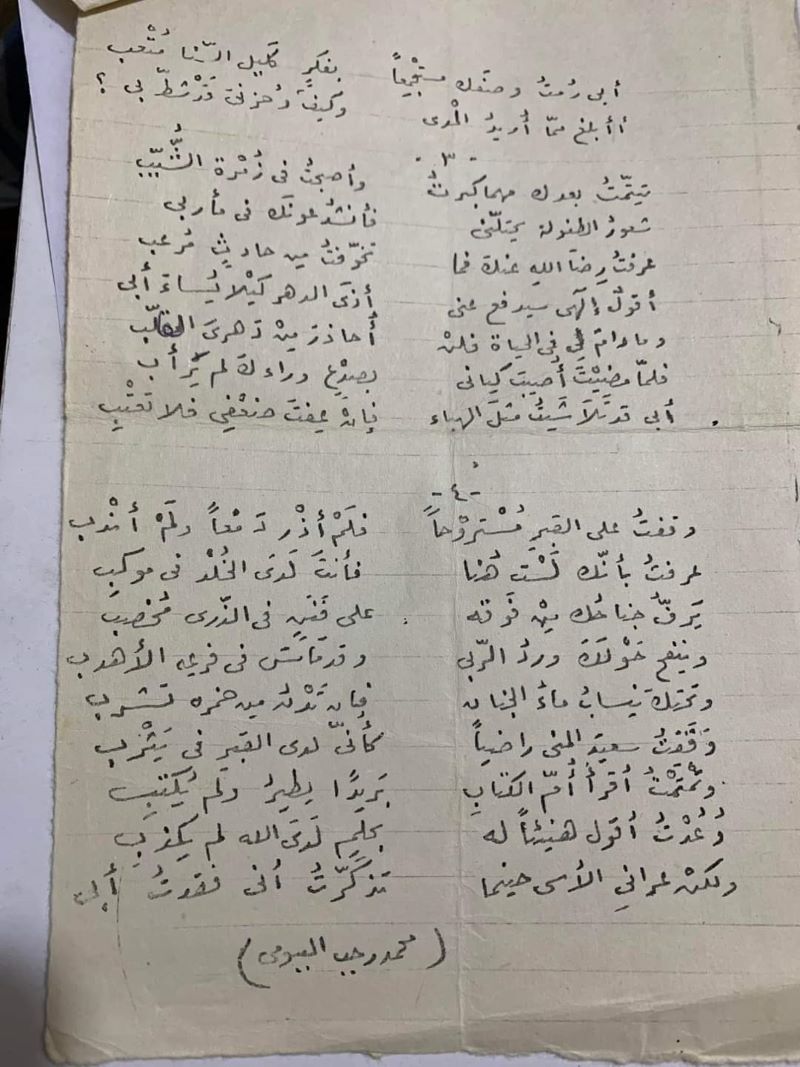 أبى رُمتُ وصفَك مستجمِعاً بفكرٍ كليل السّنا مُتْعب
أأبلغ ممّا أُريدُ المدى وكيفَ وحزنىَ قدْ شطَّ بى ؟
- ٣ -
تيتّمتُ بعدك مهما كبرتُ وأصبحتُ فى زُمْرة الشُّيّبِ
شعورُ الطفولة يحتلّنى فأنشدُ عونَك فى مأربى
عرفتُ رِضَا اللهِ عنكَ فما تخوّفتُ من حادثٍ مُرعب
أقولُ إلَهى سيدفع عنى أذَى الدهر كيْلا يُساءَ أبى
ومادامَ لِى فى الحياة فلنْ أُحاذرَ مِنْ دَهرىَ القُلّب
فلمّا مضيْتَ أُصيبَ كيانى بصدْعٍ وراءكَ لم يُرأبِ
أبى قد تلاشَيتُ مثلَ الهباء فإنْ عِفتَ ضعْفِى فلا تَعْتِبِ
- ٤ -
وقفتُ على القبرِ مُسْتروْحاً فلَمْ أذْرِ دَمْعاً ولَمْ أنْدب
عرفتُ بأنّك لَسْتَ هُنا فأنتَ لَدَى الخُلْد فى موكبِ
يَرفّ جناحُك مِنْ فَوقه على فَنَنٍ فى الذّرى مُخْصب
وينفح حَوْلَكَ وردُ الرّبى وقد مَاسَ فى فرعِه الأهدب
وتحتكَ ينسابُ ماءُ الجنان فإن تَدْنُ من خمره تشرب
وَقَفْتُ سعيدَ المنى راضياً كأنّى لدى القبر فى يَثْرب
وتمْتمْتُ أقرأ أُمّ الكتابِ بَريدًا يطيرُ ولَم يُكتبِ
وعُدْتُ أقول هنيئاً له بحلمٍ لَدَى الله لم يكذبِ
ولكنْ عرانىِ الأسى حينما تذكّرتُ أنى فقدتُ أبى
(محمد رجب البيومى)